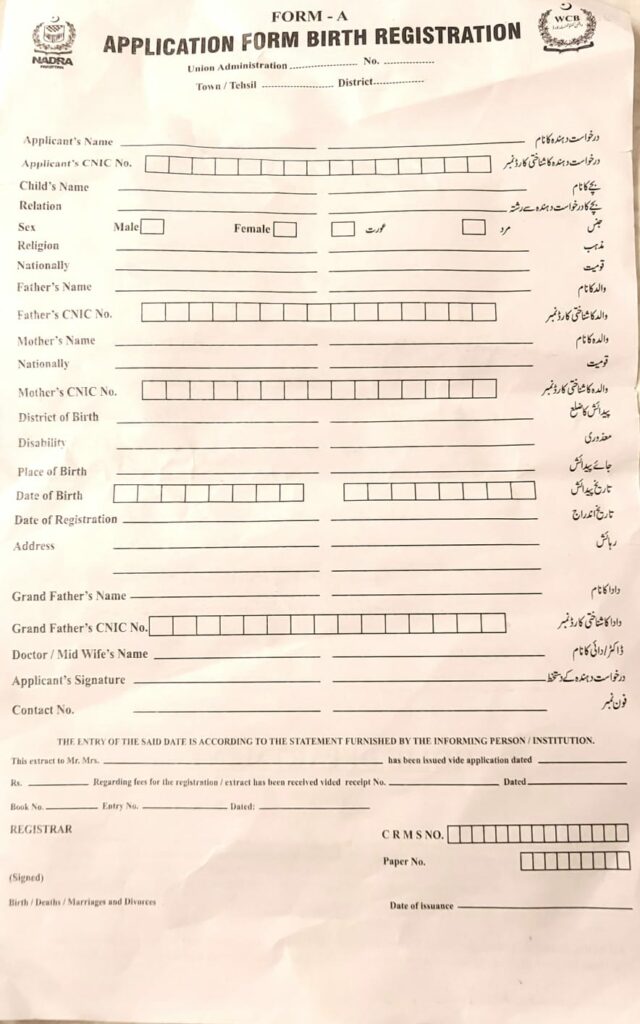 FORM - A
APPLICATION FORM BIRTH REGISTRATION
NADRA
PAKISTAN
WCB
Union Administration.................... No. ................
Town / Tehsil ...................... District................
Applicant's Name درخواست دہندہ کا نام
Applicant's CNIC No. درخواست دہندہ کا شناختی کارڈ نمبر
Child's Name بچے کا نام
Relation بچے کا درخواست دہندہ سے رشتہ
Sex Male Female عورت مرد جنس
Religion مذہب
Nationally قومیت
Father's Name والد کا نام
Father's CNIC No. والد کا شناختی کارڈ نمبر
Mother's Name والدہ کا نام
Nationally قومیت
Mother's CNIC No. والدہ کا شناختی کارڈ نمبر
District of Birth پیدائش کا ضلع
Disability معذوری
Place of Birth جائے پیدائش
Date of Birth تاریخ پیدائش
Date of Registration تاریخ اندراج
Address رہائش
Grand Father's Name دادا کا نام
Grand Father's CNIC No. دادا کا شناختی کارڈ نمبر
Doctor / Mid Wife's Name ڈاکٹر/دائی کا نام
Applicant's Signature درخواست دہندہ کے دستخط
Contact No. فون نمبر
THE ENTRY OF THE SAID DATE IS ACCORDING TO THE STATEMENT FURNISHED BY THE INFORMING PERSON / INSTITUTION.
This extract to Mr. Mrs. has been issued vide application dated
Rs. Regarding fees for the registration / extract has been received vided receipt No. Dated
Book No. Entry No. Dated:
REGISTRAR
C R M S NO.
Paper No.
(Signed)
Birth / Deaths / Marriages and Divorces
Date of issuance